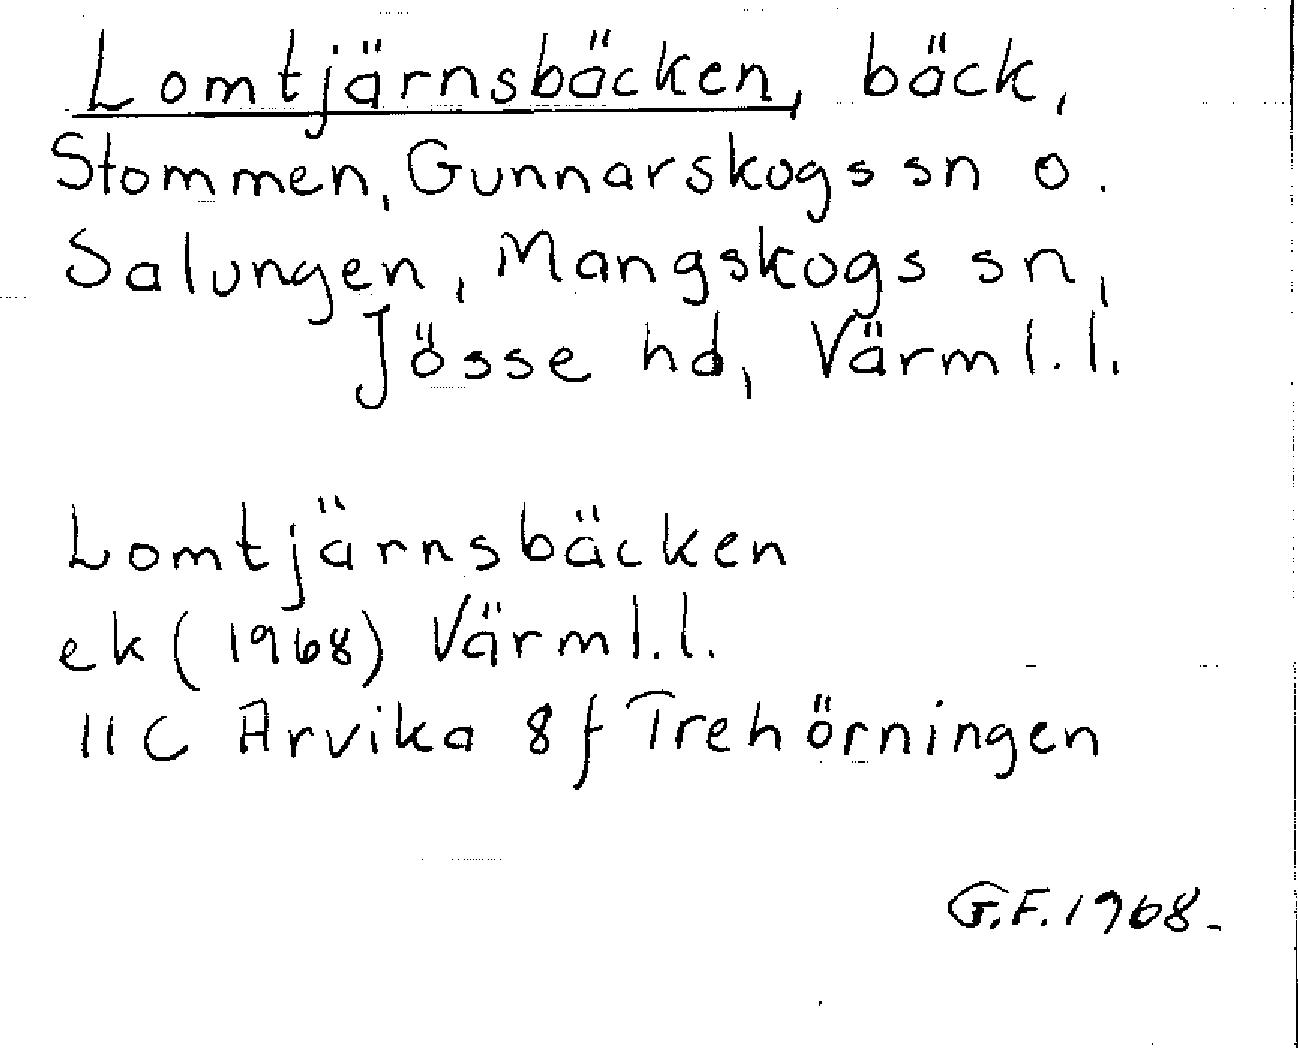 Lomtjärnsbäcken, bäck,
Stommen, Gunnarskogs sn o.
Salungen, Mangskogs sn,
Jösse hd, Värml.l.
Lomtjärnsbäcken
ek (1968) Värml.l.
11C Arvika 8f Trehörningen
G.F. 1968.